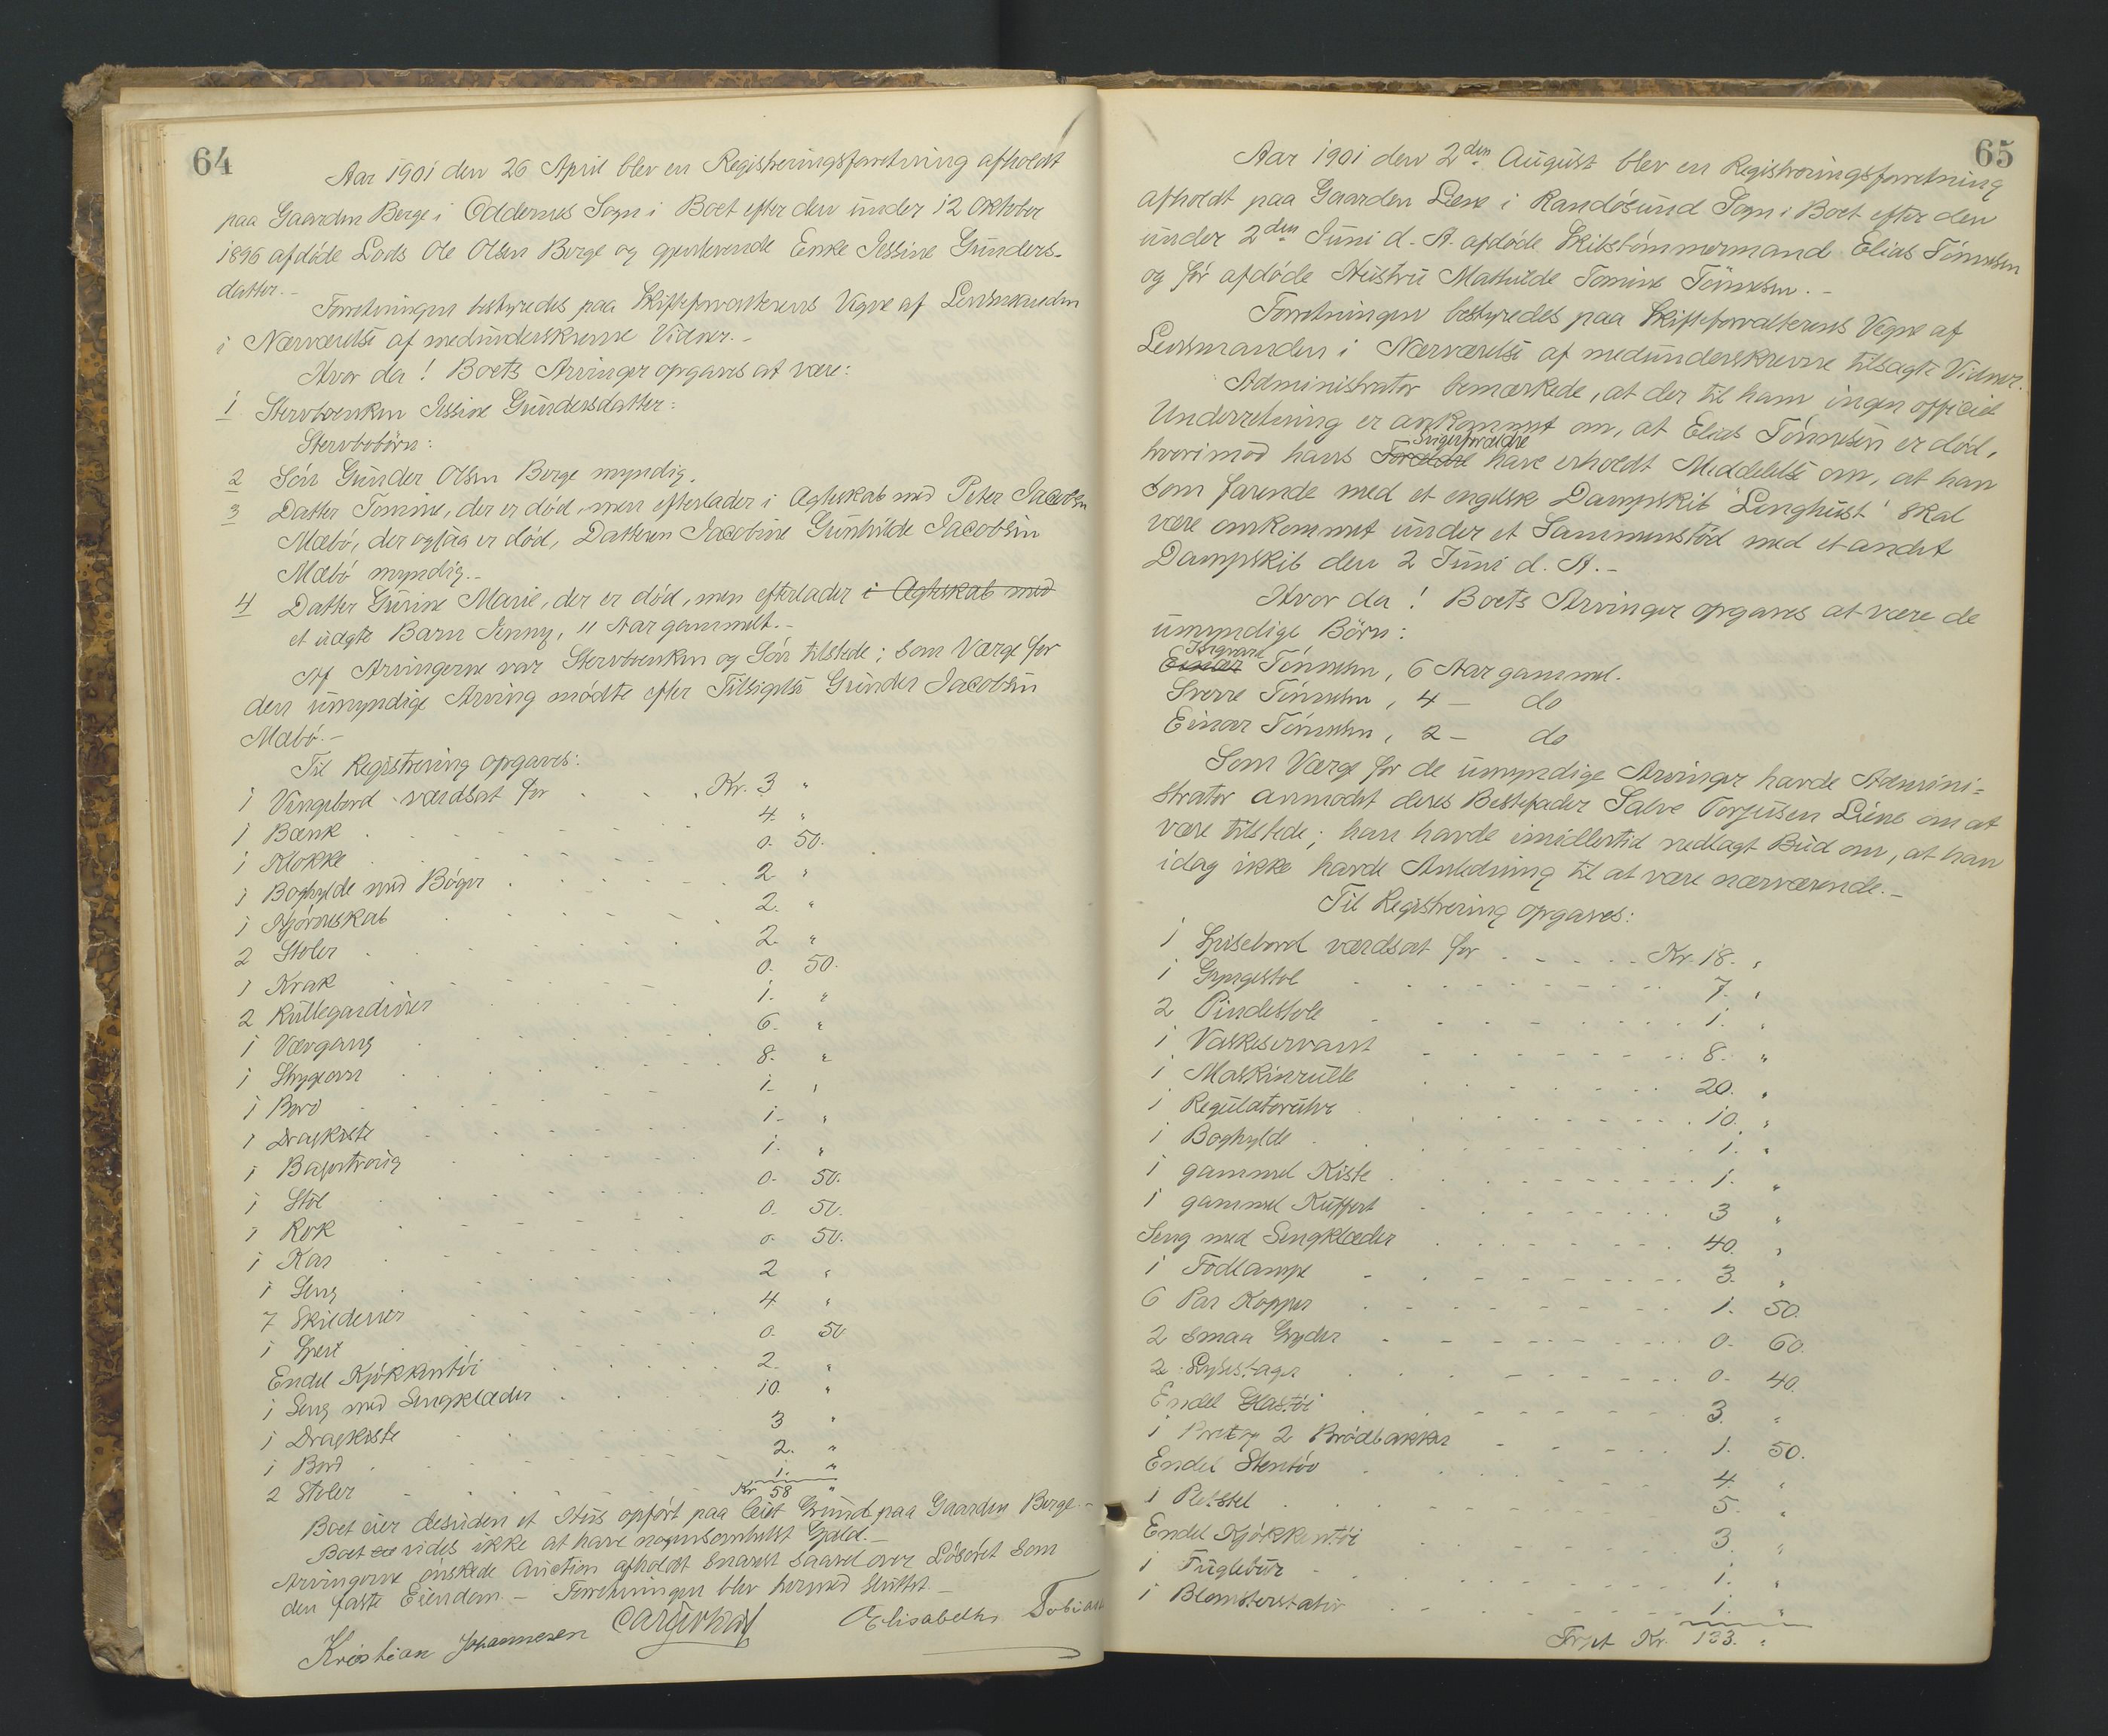 64
Aar 1901 den 26 April blev en Registreringsforretning afholdt
paa Gaarden Berge i Oddernes Sogn i Boet efter den under 12 Oktober
1896 afdöde Lods Ole Olsen Berge og gjenlevende Enke Jessine Gunders-
datter.-
Forretningen bestyredes paa Skifteforvalterens Vegne af Lensmanden
i Nærværelse af medunderskrevne Vidner.-
Hvor da! Boets Arvinger opgaves at være:
1 Stervboenken Jessine Gundersdatter:
Stervbobörn:
2 Sön Gunder Olsen Berge myndig.
3 Datter Tomine, der er död, men efterlader i Ægteskab med Peter Jacobsen
Mæbö, der ogsaa er död, Datteren Jacobine Gunhilde Jacobsen
Mæbö myndig.-
4 Datter Gurine Marie, der er död, men efterlader i Ægteskab med
et uægte Barn Jenny, 11 Aar gammelt.-
Af Arvingerne var Stervboenken og Sön tilstede; som Værge for
den umyndige Arving mödte efter Tilsigelse Gunder Jacobsen
Mæbö.-
Til Registrering opgaves:
1 Vingebord værdsat for Kr. 3 "
1 Bænk 4. "
1 Klokke 0. 50.
1 Boghylde med Böger 2. "
1 Hjörneskab 2. "
2 Stoler 2. "
1 Krak 0. 50.
2 Rullegardiner 1. "
1 Vævgang 6. "
1 Strygeovn 8. "
1 Bord 1. "
1 Dragkiste 1. "
1 Bagertroug 1. "
1 Stol 0. 50.
1 Rok 0. 50.
1 Kar 0. 50.
1 Seng 2 "
7 Skilderier 4 "
1 Speil 0. 50
Endel Kjökkentöi 2. "
1 Seng med Sengklæder 10. "
1 Dragkiste 3 "
1 Bord 2. "
2 Stoler 1. "
Kr 58 "
Boet eier desuden et Hus opfört paa leiet Grund paa Gaarden Berge.-
Boet vides ikke at have nogensomhelst Gjæld.-
Arvingerne önskede Auction afholdt snarest saavel over Lösöret som
den faste Eiendom.- Forretningen blev hermed sluttet.-
Kristian Johannesen Elisabeths Tobias
65
Aar 1901 den 2den August blev en Registreringsforretning
afholdt paa Gaarden Liene i Randösund Sogn i Boet efter den
under 2den Juni d. A. afdöde Skibstömmermand Elias Tönnesen
og för afdöde Hustru Mathilde Tomine Tönnesen.-
Forretningen bestyredes paa Skifteforvalterens Vegne af
Lensmanden i Nærværelse af medunderskrevne tilsagte Vidner.
Administrator bemærkede, at der til ham ingen officiel
Underretning er ankommet om, at Elias Tönnesen er död,
Svigerforældre
hvorimod hans Forældre have erholdt Meddelelse om, at han
som farende med et engelsk Dampskib "Linghust" skal
være omkommet under et Sammenstöd med et andet
Dampskib den 2 Juni d. A.-
Hvor da! Boets Arvinger opgaves at være de
umyndige Börn:
Ingvard
Einar Tönnesen, 6 Aar gammel.
Sverre Tönnesen, 4 - do
Einar Tönnesen, 2 - do
Som Værge for de umyndige Arvinger havde Admini=
strator anmodet deres Bestefader Salve Torjusen Liene om at
være tilstede; han havde imidlertid nedlagt Bud om, at han
idag ikke havde Anledning til at være nærværende.-
Til Registrering opgaves:
1 Spisebord værdsat for Kr. 18. "
1 Gyngestol 7. "
2 Pindestole 1. "
1 Vaskeservant 8. "
1 Maskinrulle 20. "
1 Regulatoruhr 10. "
1 Boghylde 1. "
1 gammel Kiste 1. "
1 gammel Kuffert 3 "
Seng med Sengklæder 40. "
1 Fodlampe 3. "
6 Par Kopper 1. 50.
2 smaa Gryder 0. 60.
2 Lysestager 0. 40.
Endel Glastöi 3. "
1 2 Brödbakker 1. 50.
Endel Stentöi 4. "
1 5. "
Endel Kjökkentöi 3. "
1 Fuglebur 1. "
1 Blomsterstativ 1. "
Trspt Kr. 133. "